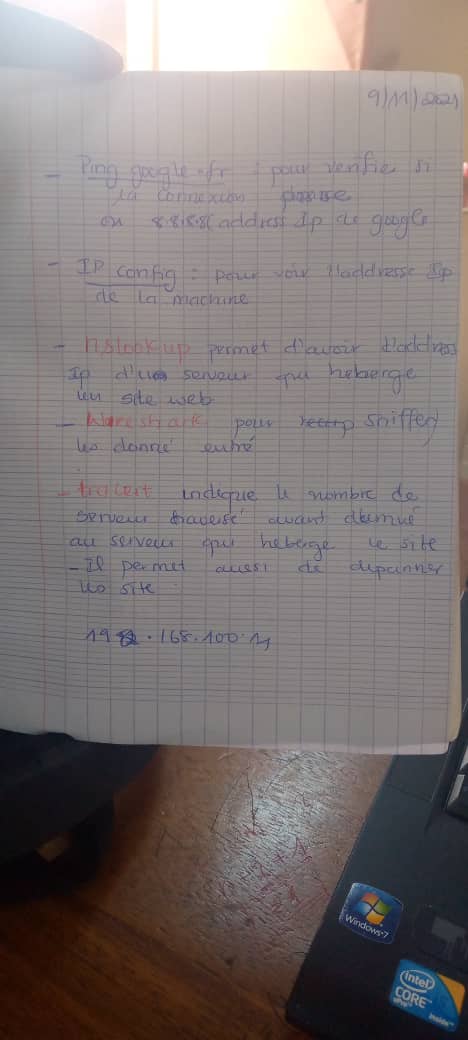 9/11/2021
- Ping google.fr : pour verifie si
la connexion passe
ou 8.8.8.8( address Ip de google
- IP config : pour voir l'addresse Ip
de la machine
- nslookup permet d'avoir l'address
Ip d'un serveur qui heberge
un site web
- Wareshark pour sniffer
les donné entré
- tracert indique le nombre de
serveur traversé avant
au serveur qui heberge le site
- Il permet aussi de depanner
les site
192.168.100.
Windows 7
intel
CORE
vPro
inside